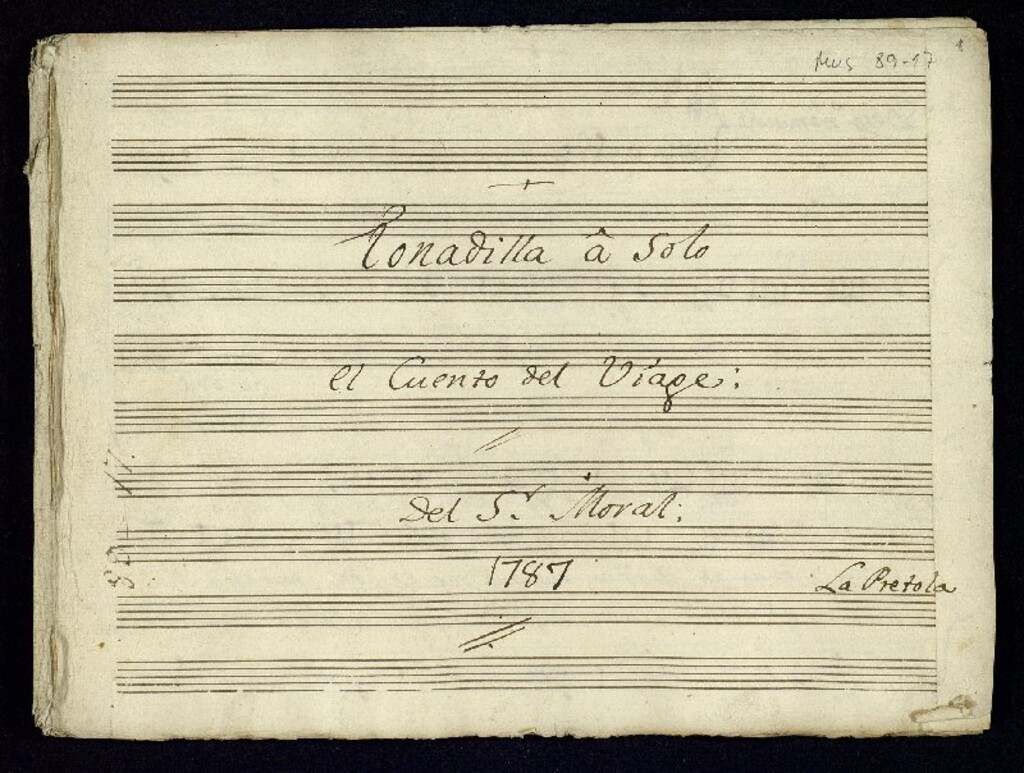 Mus 89-17
1
Tonadilla â Solo
el Cuento del Viage:
Del S.r Moral:
1787
La Pretola
89-17.